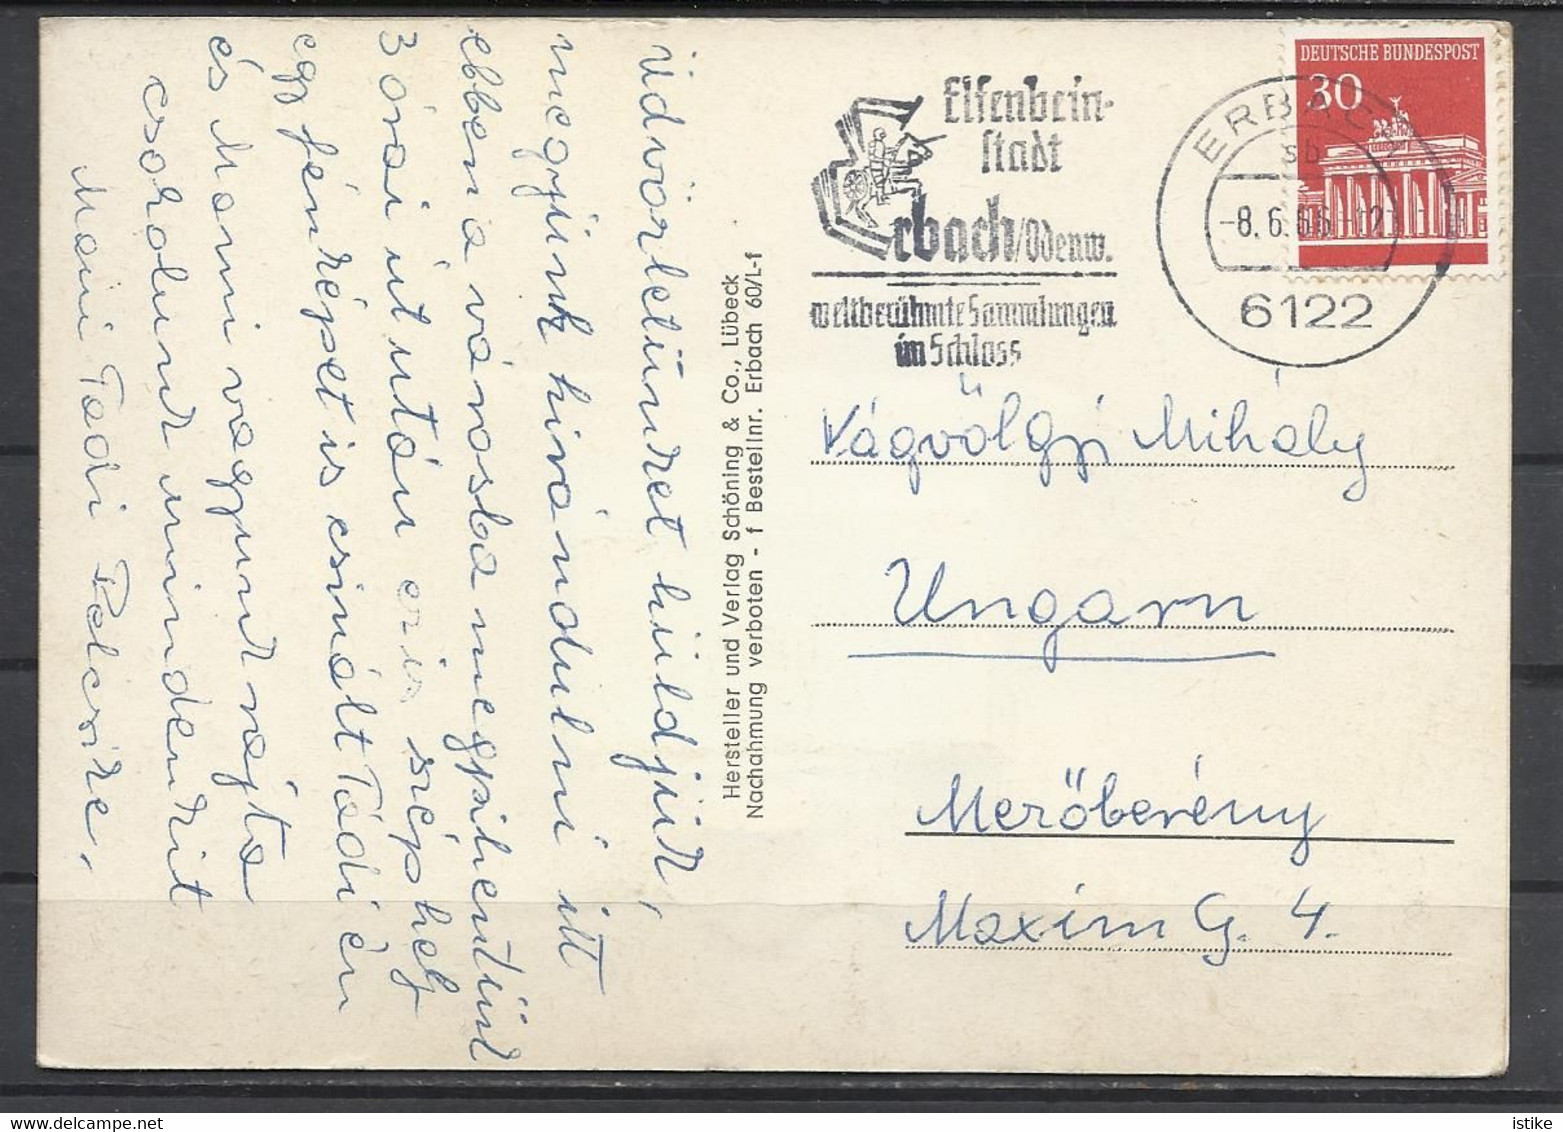 Üdvözletünket küldjük,
megyünk kirándulni itt
ebbe a városba megpihentünk
3 órai út után szép hely
egy fényképet is csinált Tódi én
és Mami vagyunk rajta
csokolunk mindenkit
Mami Tódi Petcsike,
Hersteller und Verlag Schöning & Co., Lübeck
Nachahmung verboten - f Bestellnr. Erbach 60/L-f
Elfenbein-
stadt
Erbach/Odenw.
weltberühmte Sammlungen
im Schloss
ERBACH
sb
-8.6.66-12
6122
DEUTSCHE BUNDESPOST
30
Vágvölgyi Mihály
Ungarn
Mezőberény
Maxim G. 4.
istike